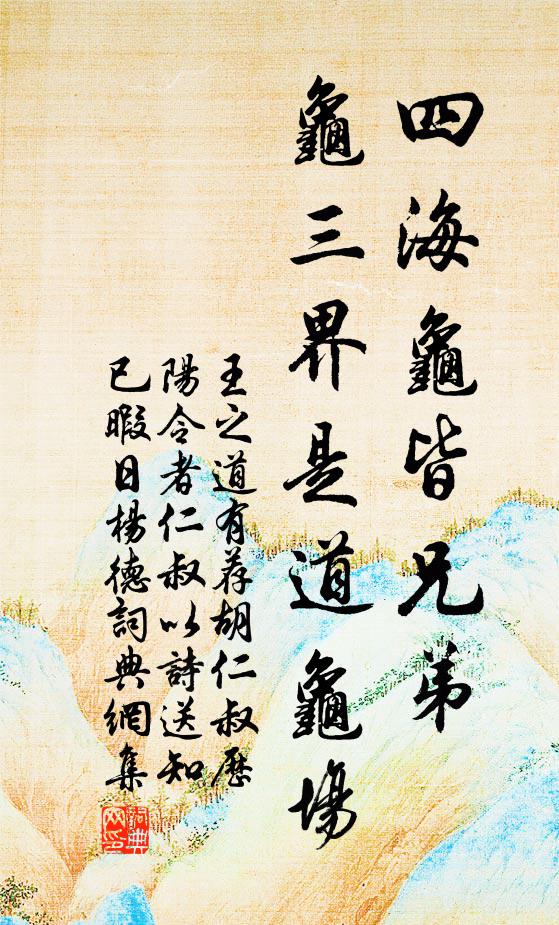 四海龜皆兄弟
龜三界是道龜場
王之道有荐胡仁叔歷
陽令者仁叔以詩送知
已暇日楊德詞典網集
詞典
网印